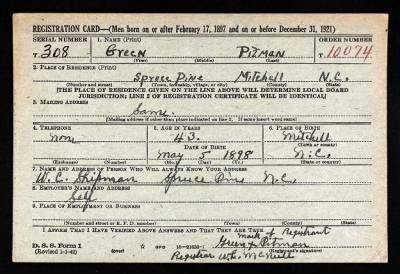 REGISTRATION CARD—(Men born on or after February 17, 1897 and on or before December 31, 1921)
SERIAL NUMBER 1. NAME (Print) ORDER NUMBER
T 308 Green Pitman 10074
(First) (Middle) (Last)
2. PLACE OF RESIDENCE (Print)
Spruce Pine Mitchell N.C.
(Number and street) (Town, township, village, or city) (County) (State)
[THE PLACE OF RESIDENCE GIVEN ON THE LINE ABOVE WILL DETERMINE LOCAL BOARD
JURISDICTION; LINE 2 OF REGISTRATION CERTIFICATE WILL BE IDENTICAL]
3. MAILING ADDRESS
Same.
[Mailing address if other than place indicated on line 2. If same insert word same]
4. TELEPHONE 5. AGE IN YEARS 6. PLACE OF BIRTH
none 43. Mitchell
DATE OF BIRTH (Town or county)
May 5 1898 N.C.
(Exchange) (Number) (Mo.) (Day) (Yr.) (State or country)
7. NAME AND ADDRESS OF PERSON WHO WILL ALWAYS KNOW YOUR ADDRESS
W. C. Shipman Spruce Pine N.C.
8. EMPLOYER'S NAME AND ADDRESS
Self
9. PLACE OF EMPLOYMENT OR BUSINESS
(Number and street or R. F. D. number) (Town) (County) (State)
I AFFIRM THAT I HAVE VERIFIED ABOVE ANSWERS AND THAT THEY ARE TRUE.
mark of Registrant
D. S. S. Form 1 (over) Green x Pitman
(Revised 1-1-42) (Registrant's signature)
Registrar